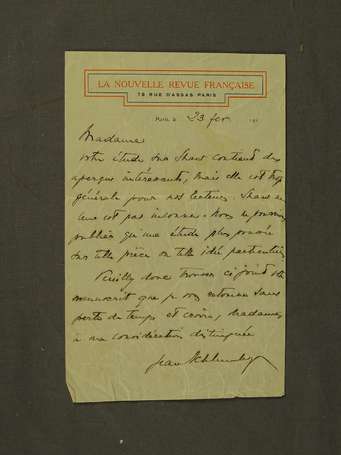 LA NOUVELLE REVUE FRANÇAISE
78 RUE D'ASSAS PARIS
Paris, le 23 fev 191
Madame
votre étude sur Shaw contient des
aperçus intéressants, mais elle est trop
générale pour nos lecteurs. Shaw ne
leur est pas inconnu. Nous ne pouvons
publier qu'une étude plus poussée
sur telle pièce ou telle idée particulière.
Veuillez donc trouver ci joint votre
manuscrit que je vous retourne sans
perte de temps et croire, Madame,
à ma considération distinguée
Jean Schlumberger